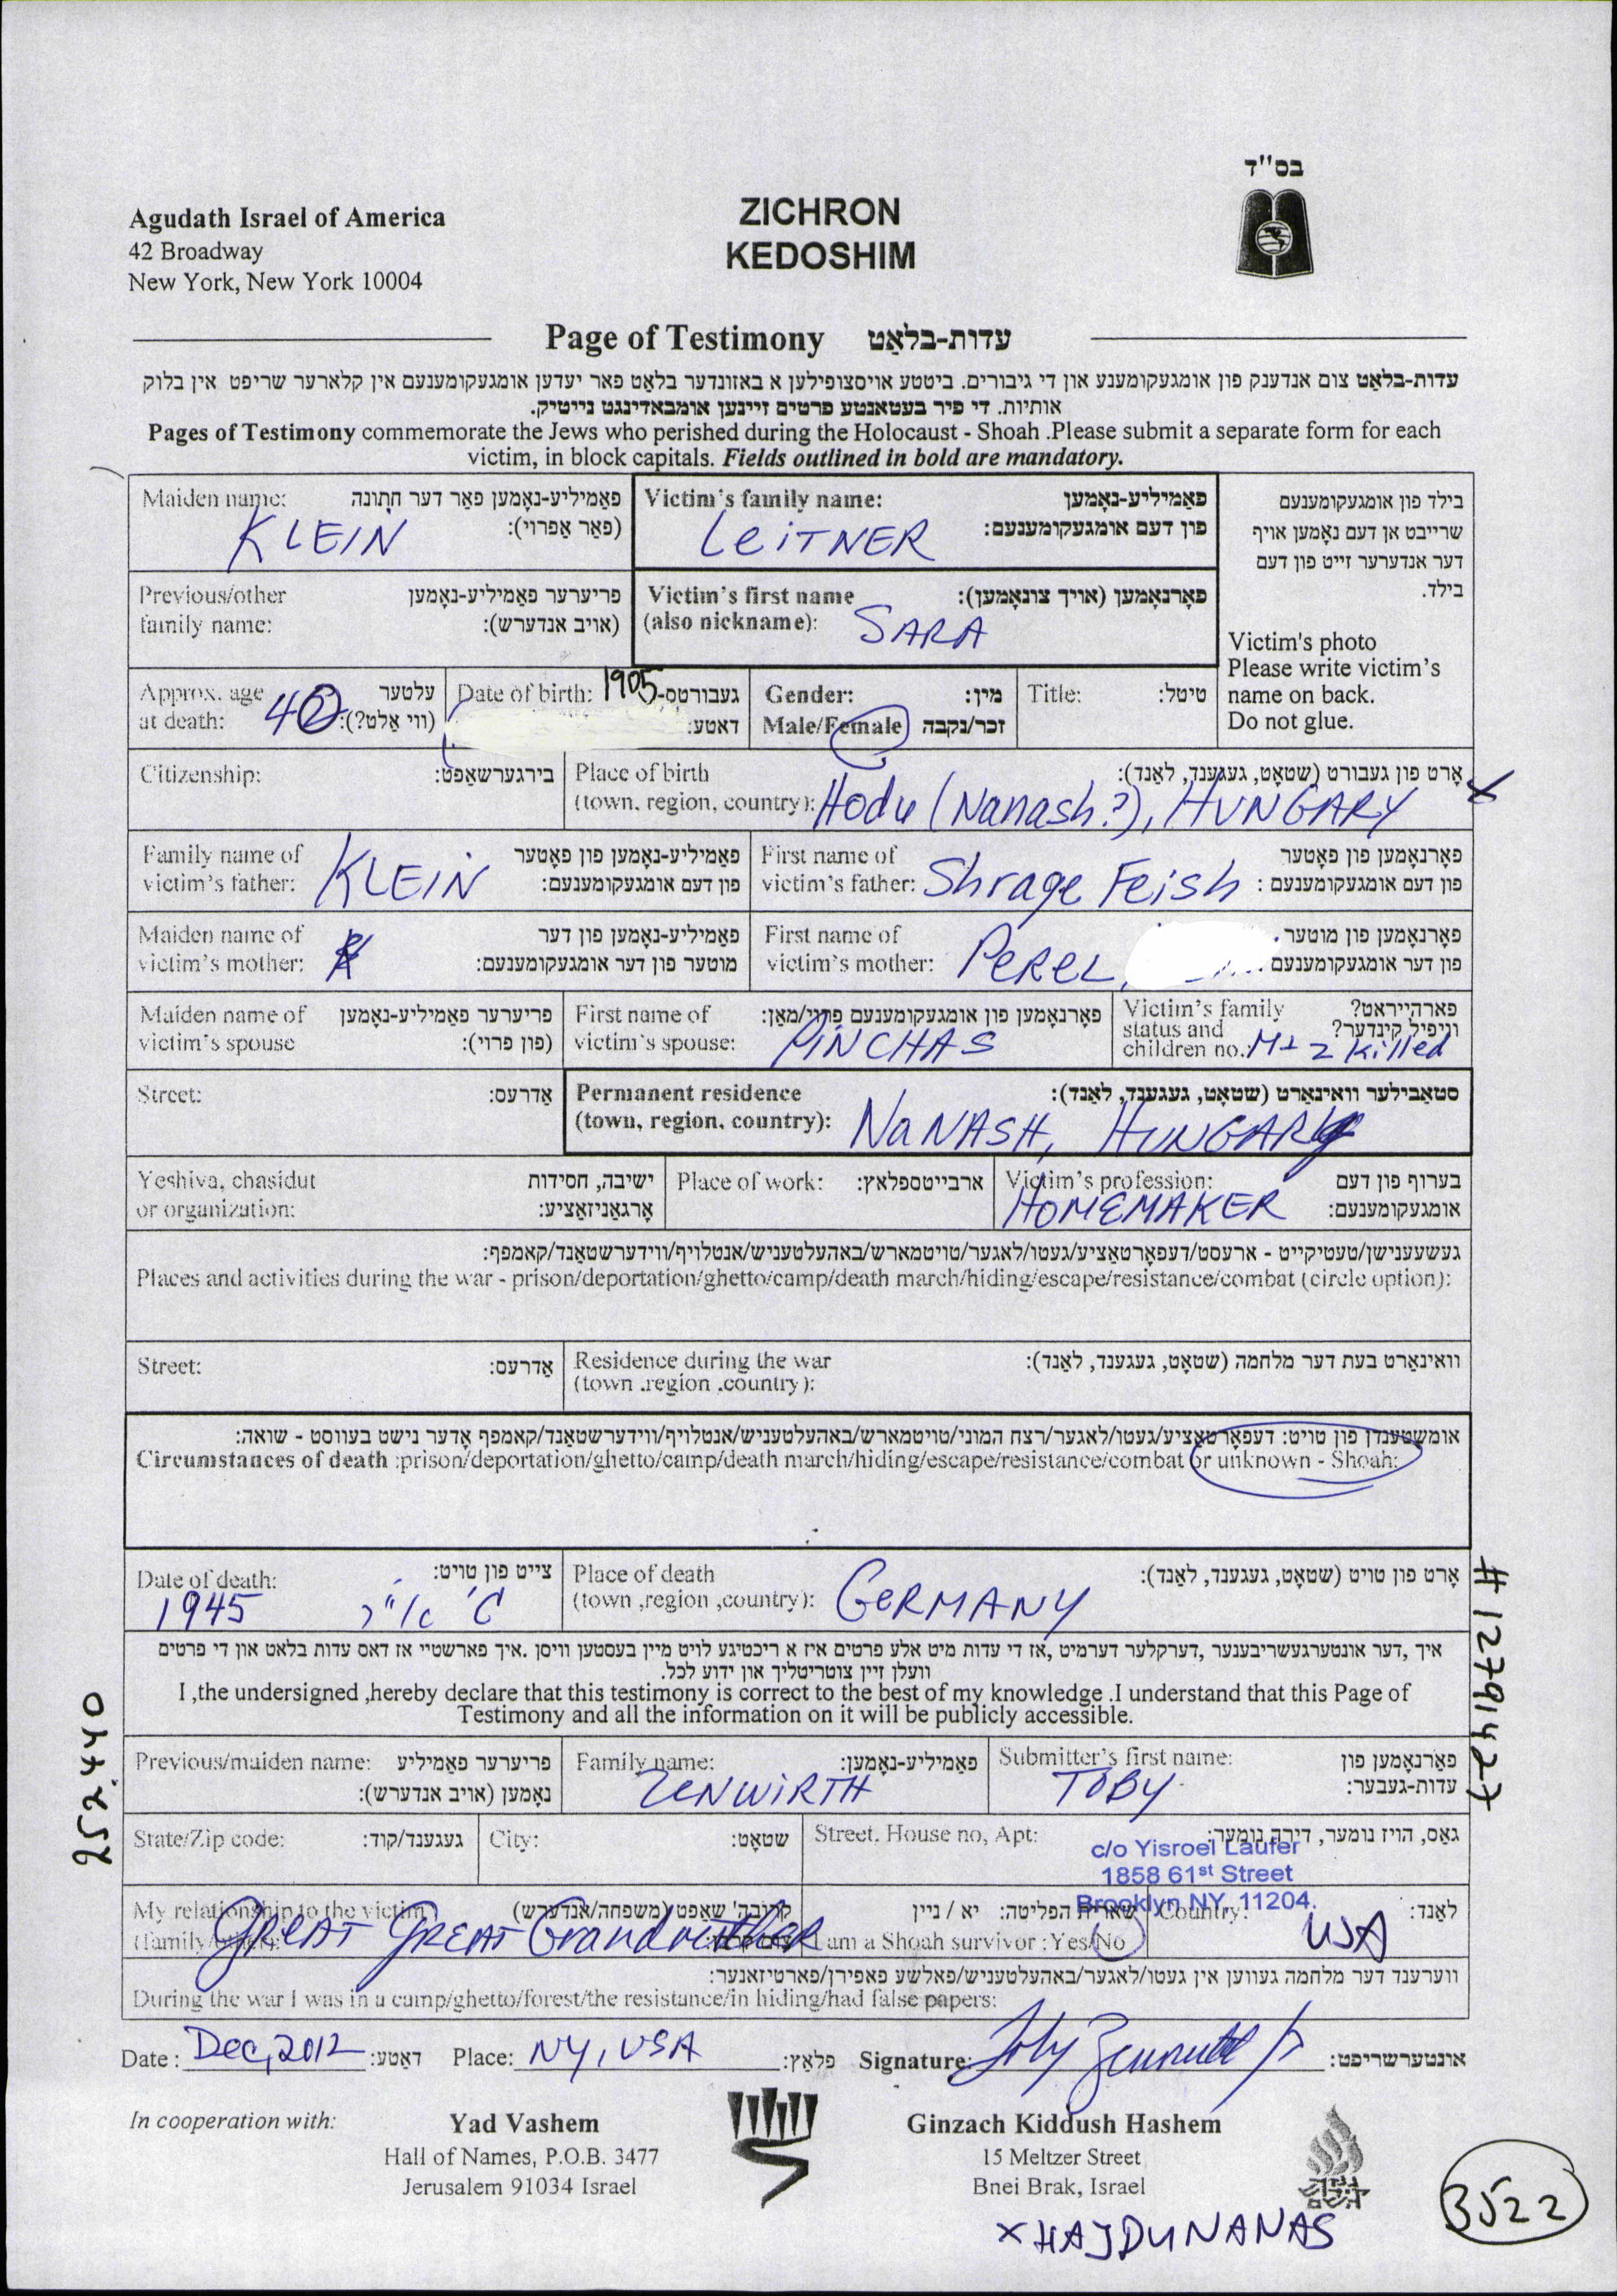 בס"ד
Agudath Israel of America
42 Broadway
New York, New York 10004
ZICHRON
KEDOSHIM
Page of Testimony עדות-בלאַט
עדות-בלאַט צום אנדענק פון אומגעקומענע און די גיבורים. ביטטע אויסצופילען א באזונדער בלאַט פאר יעדען אומגעקומענעם אין קלארער שריפט אין בלוק
אותיות. די פיר בעטאנטע פרטים זיינען אומבאדינגט נייטיק.
Pages of Testimony commemorate the Jews who perished during the Holocaust - Shoah .Please submit a separate form for each
victim, in block capitals. Fields outlined in bold are mandatory.
Maiden name: פאַמיליע-נאָמען פאַר דער חתונה
(פאַר אַפרוי):
KLEIN
Victim's family name: פאַמיליע-נאָמען
פון דעם אומגעקומענעם:
LEiTNER
בילד פון אומגעקומענעם
שרייבט אן דעם נאָמען אויף
דער אנדערער זייט פון דעם
בילד.
Victim's photo
Please write victim's
name on back.
Do not glue.
Previous/other פריערער פאַמיליע-נאָמען
family name: (אויב אנדערש):
Victim's first name פאָרנאָמען (אויך צונאָמען):
(also nickname): SARA
Approx. age עלטער
at death: 40 (ווי אַלט?):
Date of birth: 1905 געבורטס-
דאטע:
Gender: מין:
Male/Female זכר/נקבה
Title: טיטל:
Citizenship: בירגערשאַפט:
Place of birth אָרט פון געבורט (שטאָט, געגענד, לאַנד):
(town, region, country): Hodu (Nanash?), HUNGARY x
Family name of פאַמיליע-נאָמען פון פאָטער
victim's father: KLEIN פון דעם אומגעקומענעם:
First name of פאָרנאָמען פון פאָטער
victim's father: Shrage Feish פון דעם אומגעקומענעם :
Maiden name of פאַמיליע-נאָמען פון דער
victim's mother: מוטער פון דער אומגעקומענעם:
First name of פאָרנאָמען פון מוטער
victim's mother: PEREL, פון דער אומגעקומענעם :
Maiden name of פריערער פאַמיליע-נאָמען
victim's spouse (פון פרוי):
First name of פאָרנאָמען פון אומגעקומענעם פרוי/מאַן:
victim's spouse: PINCHAS
Victim's family פארהייראט?
status and וויפיל קינדער?
children no. M+ 2 killed
Street: אַדרעס:
Permanent residence סטאַבילער וואוינאָרט (שטאָט, געגענד, לאַנד):
(town, region, country): NaNASH, HUNGARY
Yeshiva, chasidut ישיבה, חסידות
or organization: אָרגאַניזאַציע:
Place of work: ארבייטספלאץ:
Victim's profession: בערוף פון דעם
HOMEMAKER אומגעקומענעם:
געשעענישן/טעטיקייט - ארעסט/דעפאָרטאַציע/געטו/לאגער/טויטמארש/באהעלטעניש/אנטלויף/ווידערשטאַנד/קאמפף:
Places and activities during the war - prison/deportation/ghetto/camp/death march/hiding/escape/resistance/combat (circle option):
Street: אַדרעס:
Residence during the war וואוינאַרט בעת דער מלחמה (שטאָט, געגענד, לאַנד):
(town .region .country):
אומשטענדן פון טויט: דעפאָרטאַציע/געטו/לאגער/רצח המוני/טויטמארש/באהעלטעניש/אנטלויף/ווידערשטאַנד/קאמפף אָדער נישט בעוואוסט - שואה:
Circumstances of death :prison/deportation/ghetto/camp/death march/hiding/escape/resistance/combat or unknown - Shoah:
Date of death: צייט פון טויט:
1945
Place of death אָרט פון טויט (שטאָט, געגענד, לאַנד):
(town ,region ,country): GERMANY
איך ,דער אונטערגעשריבענער ,דערקלער דערמיט ,אז די עדות מיט אלע פרטים איז א ריכטיגע לויט מיין בעסטען וויסן .איך פארשטיי אז דאס עדות בלאט און די פרטים
וועלן זיין צוטריטליך און ידוע לכל.
I ,the undersigned ,hereby declare that this testimony is correct to the best of my knowledge .I understand that this Page of
Testimony and all the information on it will be publicly accessible.
Previous/maiden name: פריערער פאַמיליע
נאָמען (אויב אנדערש):
Family name: פאַמיליע-נאָמען:
ZENWIRTH
Submitter's first name: פאָרנאָמען פון
TOBY עדות-געבער:
State/Zip code: געגענד/קוד:
City: שטאָט:
Street. House no, Apt: גאַס, הויז נומער, דירה נומער:
c/o Yisroel Laufer
1858 61st Street
Brooklyn NY, 11204.
My relationship to the victim קרובה'שאַפט (משפחה/אנדערש)
GREAT GREAT Grandmother
שארית הפליטה: יא / ניין
I am a Shoah survivor : Yes/No
Country: לאַנד:
USA
ווערענד דער מלחמה געווען אין געטו/לאגער/באהעלטעניש/פאלשע פאפירן/פארטיזאנער:
During the war I was in a camp/ghetto/forest/the resistance/in hiding/had false papers:
Date : Dec, 2012 דאַטע: Place: NY, USA פלאַץ: Signature: Toby Zenwirth אונטערשריפט:
In cooperation with:
Yad Vashem
Hall of Names, P.O.B. 3477
Jerusalem 91034 Israel
Ginzach Kiddush Hashem
15 Meltzer Street
Bnei Brak, Israel
x HAJDUNANAS
3522
252440
#12791427